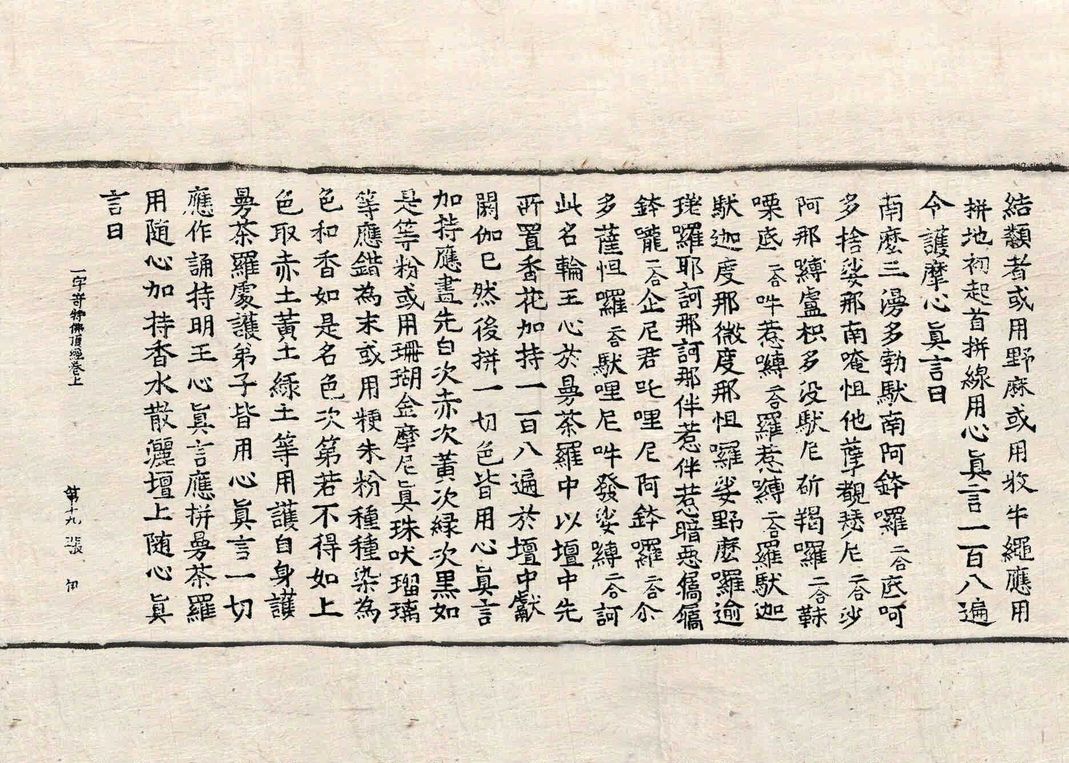 結纇者或用野麻或用收牛繩應用
拼地初起首拼線用心真言一百八遍
令護摩心真言曰
南麼三漫多勃馱南阿鉢囉二合底呵
多捨娑那南唵怛他孽覩瑟尼二合沙
阿那嚩盧枳多没馱尼斫羯囉二合靺
㗚底二合吽惹嚩二合羅惹嚩二合羅馱迦
馱迦度那微度那怛囉娑野麼囉逾
瑳羅耶訶那訶那伴惹伴惹暗惡傓傓
鉢嚨二合企尼君吒哩尼阿鉢囉二合尒
多薩怛囉二合馱哩尼吽發娑嚩二合訶
此名輪王心於曼荼羅中以壇中先
所置香花加持一百八遍於壇中獻
閼伽已然後拼一切色皆用心真言
加持應畫先白次赤次黃次緑次黒如
是等粉或用珊瑚金摩尼真珠吠瑠璃
等應錯為末或用粳朱粉種種染為
色和香如是名色次第若不得如上
色取赤土黃土緑土等用護自身護
曼荼羅處護弟子皆用心真言一切
應作誦持明王心真言應拼曼荼羅
用随心加持香水散灑壇上随心真
言曰
一字竒特佛頂經卷上 第十九張